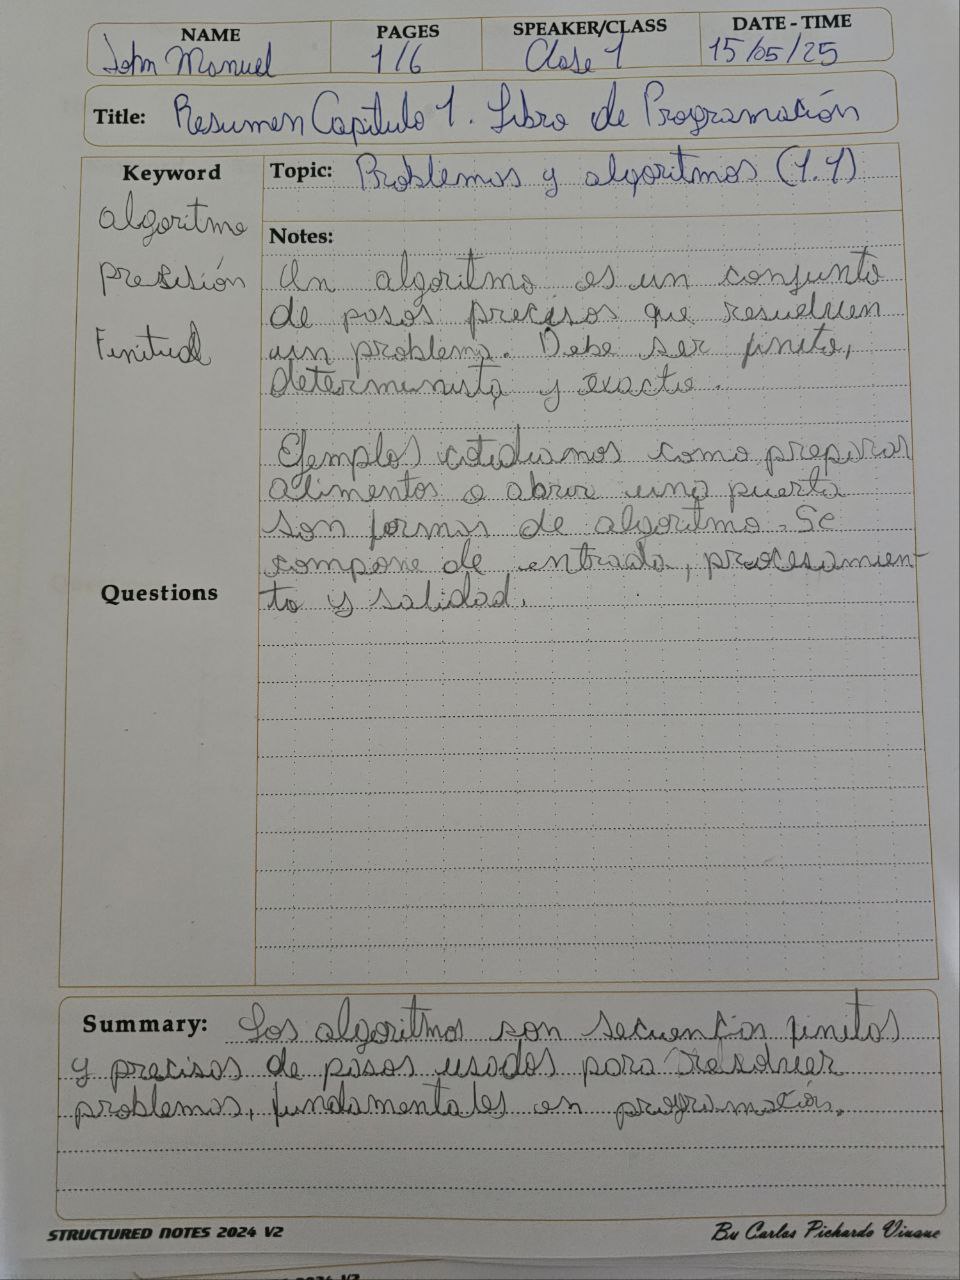 NAME PAGES SPEAKER/CLASS DATE - TIME
John Manuel 1/6 Clase 1 15/05/25
Title: Resumen Capitulo 1. Libro de Programación
Keyword
algoritmo
presisión
Finitud
Questions
Topic: Problemas y algoritmos (1.1)
Notes:
Un algoritmo es un conjunto
de pasos precisos que resuelven
un problema. Debe ser finito,
determinista y exacto.
Ejemplos cotidianos como preparar
alimentos o abrir una puerta
son formas de algoritmo. Se
compone de entrada, procesamien-
to y salidad.
Summary: Los algoritmos son secuencias finitos
y precisos de pasos usados para resolver
problemas, fundamentales en programación.
STRUCTURED NOTES 2024 V2 By Carlos Pichardo Viuque